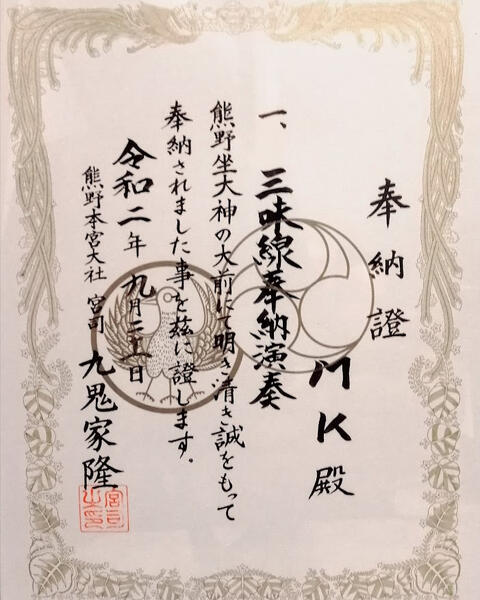 奉納證
MK 殿
一、三味線奉納演奏
熊野坐大神の大前にて明き清き誠をもって
奉納されました事を茲に證します。
令和二年九月二十二日
熊野本宮大社 宮司 九鬼家隆
宮司之印